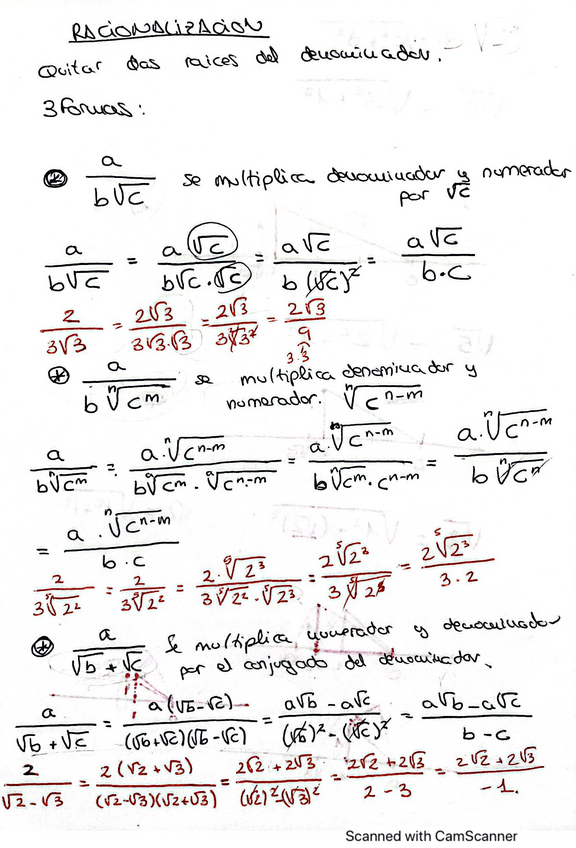 RACIONALIZACION
Quitar das raices del denominador.
3 formas:
a / b√c se multiplica denominador y numerador
por √c
a / b√c = a √c / b√c · √c = a√c / b (√c)² = a√c / b·c
2 / 3√3 = 2√3 / 3√3·√3 = 2√3 / 3√3² = 2√3 / 9
3·3
a / b ⁿ√cᵐ se multiplica denominador y
numerador. ⁿ√cⁿ⁻ᵐ
a / b ⁿ√cᵐ = a · ⁿ√cⁿ⁻ᵐ / b ⁿ√cᵐ · ⁿ√cⁿ⁻ᵐ = a · ⁿ√cⁿ⁻ᵐ / b ⁿ√cᵐ · cⁿ⁻ᵐ = a · ⁿ√cⁿ⁻ᵐ / b ⁿ√cⁿ
= a · ⁿ√cⁿ⁻ᵐ / b · c
2 / 3 ⁵√2² = 2 / 3 ⁵√2² = 2 · ⁵√2³ / 3 ⁵√2² · ⁵√2³ = 2 ⁵√2³ / 3 ⁵√2⁵ = 2 ⁵√2³ / 3 · 2
a / √b + √c Se multiplica numerador y denominador
por el conjugado del denominador.
a / √b + √c = a (√b - √c) / (√b + √c)(√b - √c) = a√b - a√c / (√b)² - (√c)² = a√b - a√c / b - c
2 / √2 - √3 = 2 (√2 + √3) / (√2 - √3)(√2 + √3) = 2√2 + 2√3 / (√2)² - (√3)² = 2√2 + 2√3 / 2 - 3 = 2√2 + 2√3 / -1.
Scanned with CamScanner